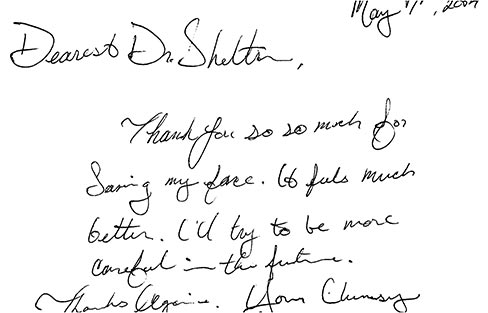 May , 2004
Dearest Dr. Shelton,
Thank you so so much for
Saving my face. It feels much
better. I'll try to be more
careful in the future.
Thanks Again. Your Clumsy